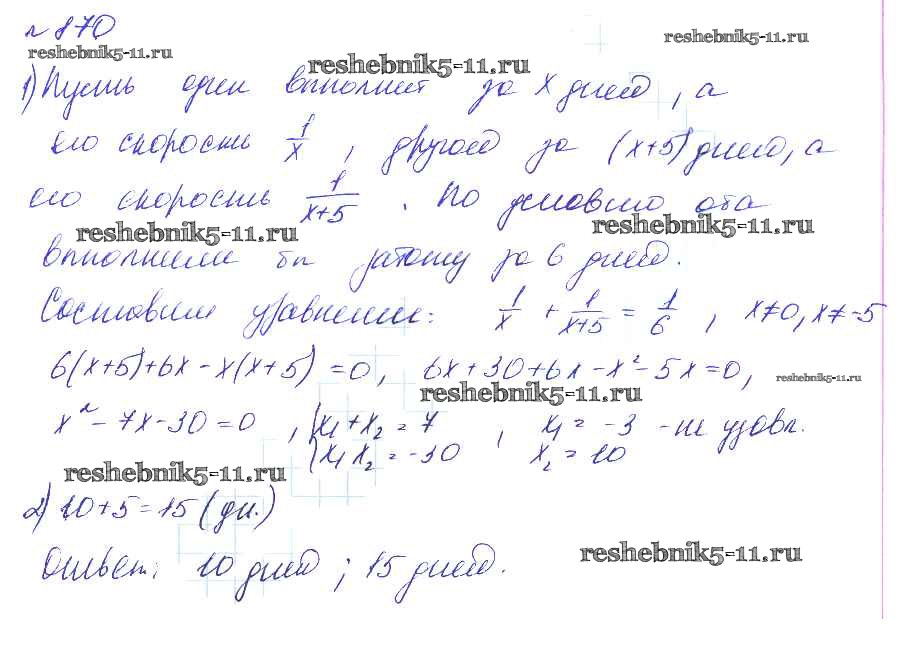 № 870
reshebnik5-11.ru
reshebnik5-11.ru
reshebnik5-11.ru
1) Пусть один выполнит за x дней, а
его скорость 1/x, другой за (x+5) дней, а
его скорость 1/(x+5). По условию оба
reshebnik5-11.ru
reshebnik5-11.ru
выполнили бы за 6 дней.
Составим уравнение: 1/x + 1/(x+5) = 1/6, x≠0, x≠-5
6(x+5)+6x-x(x+5)=0, 6x+30+6x-x²-5x=0,
reshebnik5-11.ru
reshebnik5-11.ru
x²-7x-30=0, {x₁+x₂=7, x₁=-3 -не удовл.
{x₁x₂=-30 x₂=10
reshebnik5-11.ru
2) 10+5=15 (дн.)
Ответ: 10 дней; 15 дней.
reshebnik5-11.ru